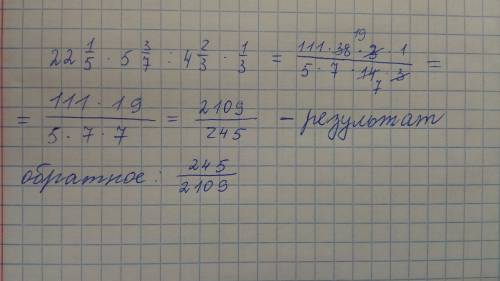 22 1/5 · 5 3/7 : 4 2/3 · 1/3 = 111 · 38 · 3 · 1 / 5 · 7 · 14 · 3 =
19
7
= 111 · 19 / 5 · 7 · 7 = 2109 / 245 – результат
обратное: 245 / 2109